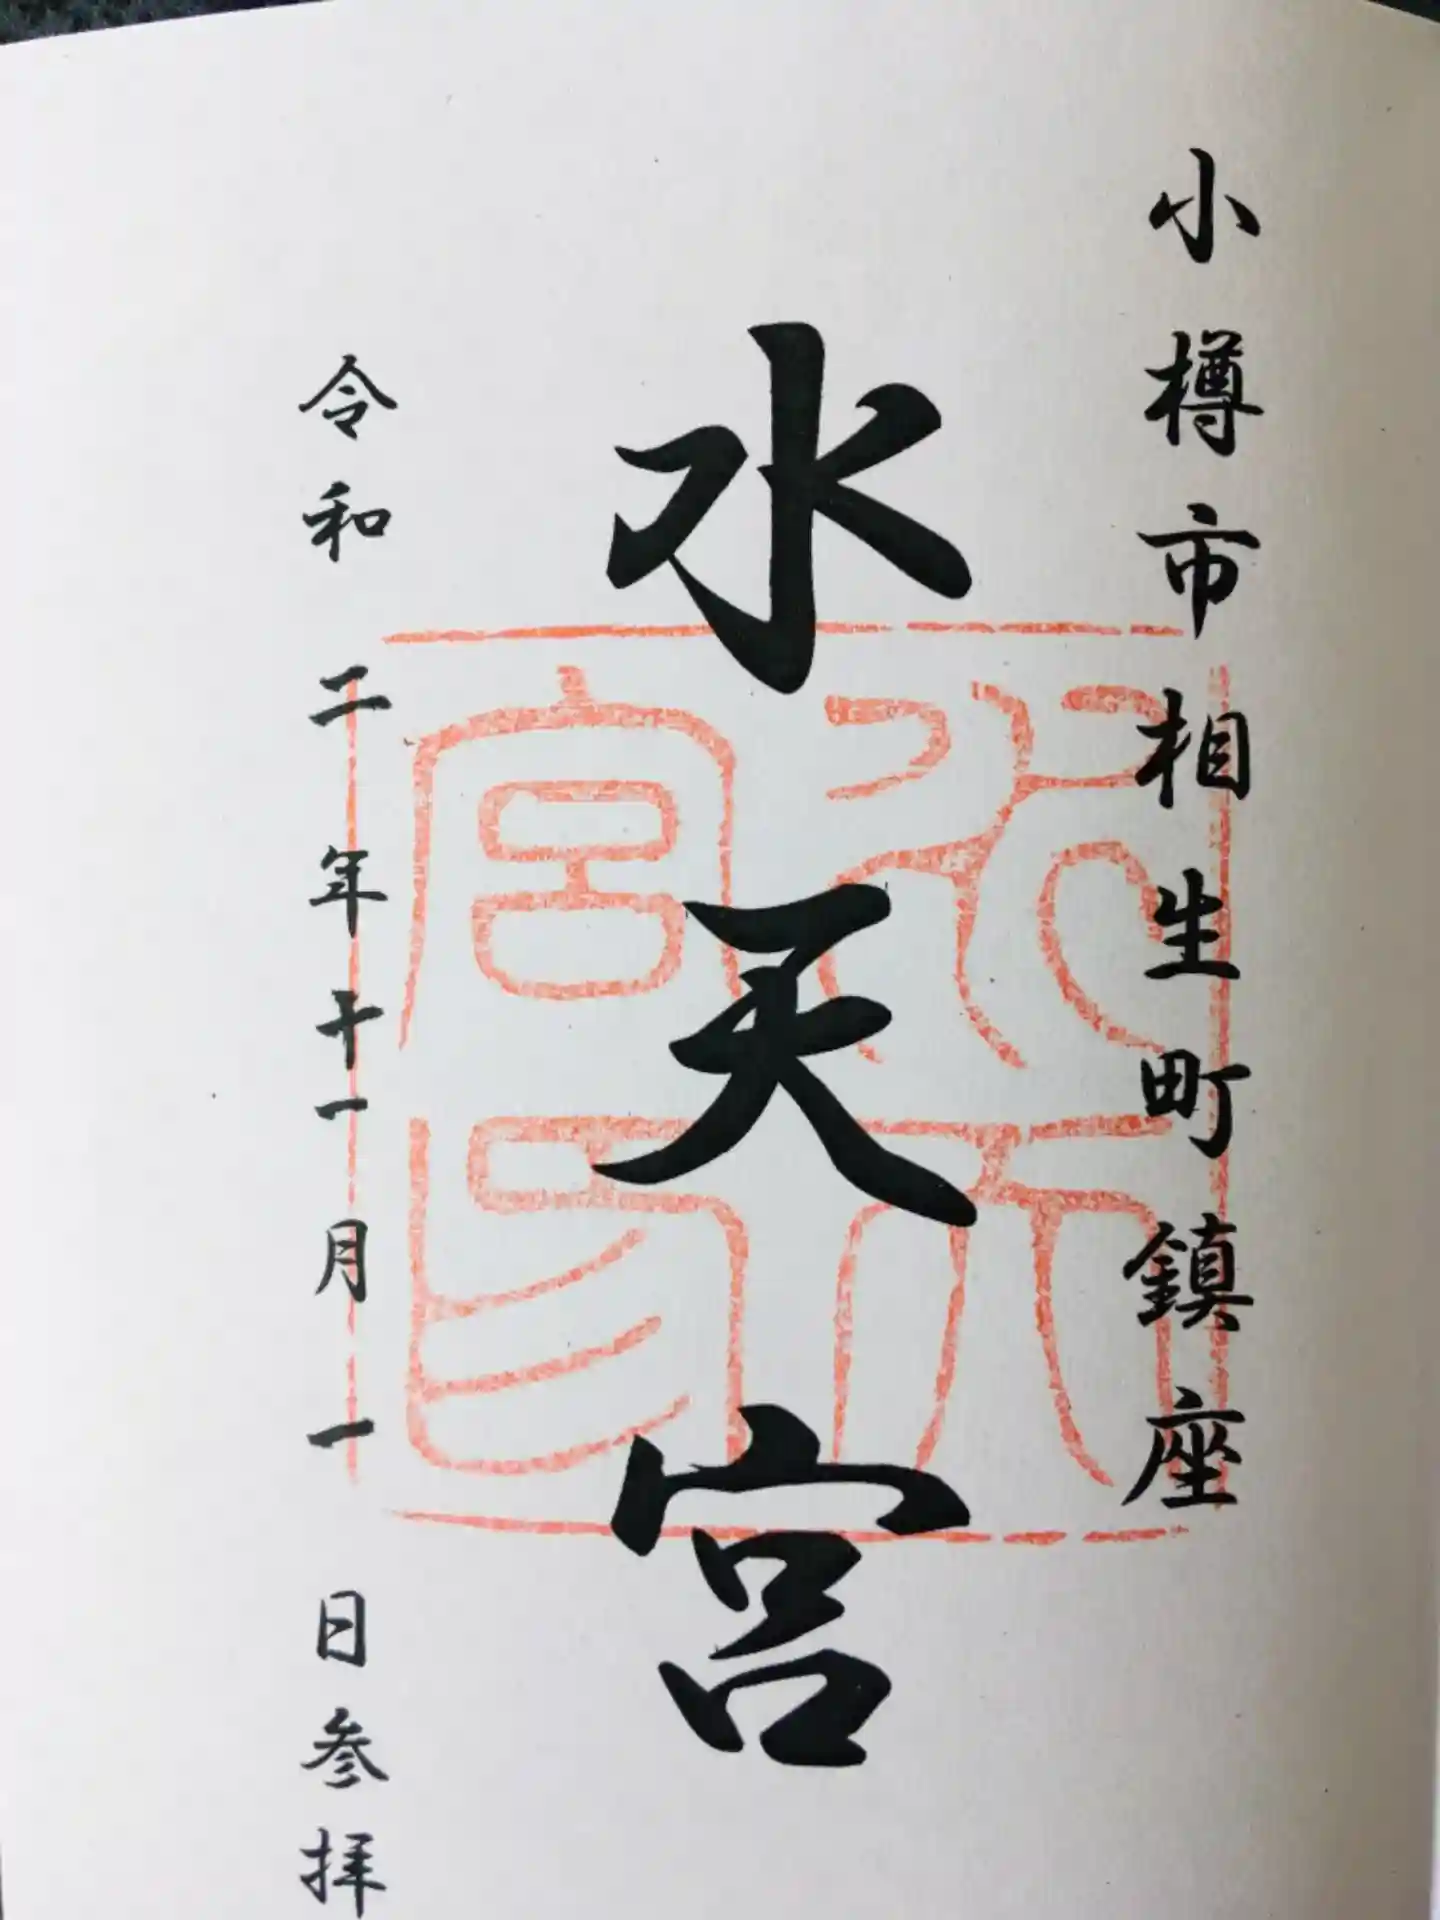 小樽市相生町鎮座
水天宮
令和二年十一月一日参拝